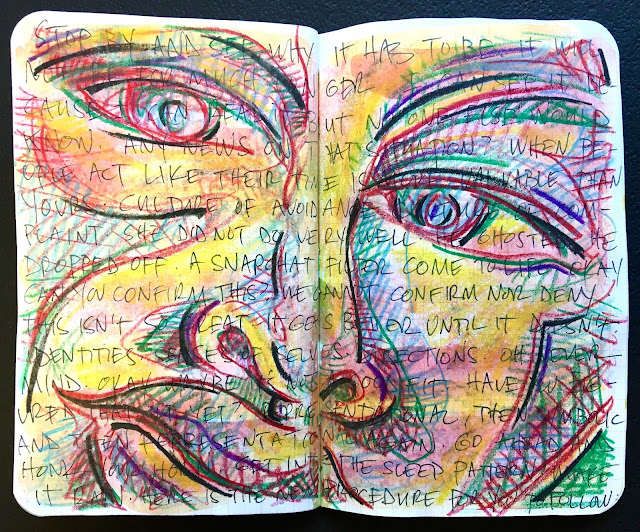 STOP BY AND SEE WHY IT HAS TO BE. IT WILL
NOT BE FOR MUCH LONGER. I CAN SEE IT BE-
CAUSE I CAN BUT NO ONE ELSE WOULD
KNOW. ANY NEWS ON THAT SITUATION? WHEN PE-
OPLE ACT LIKE THEIR TIME IS MORE VALUABLE THAN
YOURS. CULTURE OF AVOIDANCE
PLAINT. SHE DID NOT DO VERY WELL. GHOSTED. HE
DROPPED OFF. A SNAPCHAT FILTER COME TO LIFE. OKAY
CAN YOU CONFIRM THIS? WE CANNOT CONFIRM NOR DENY.
THIS ISN'T SO GREAT. IT GETS BETTER UNTIL IT DOESN'T.
IDENTITIES. SENSE OF SELVES. DIRECTIONS. OH NEVER-
MIND. OKAY. MAYBE NOT. HAVE
URED IT OUT YET? THEN SYMBOLIC
AND THEN REPRESENTATIONAL AGAIN. GO AHEAD AND
HONK YOUR HORN. GET INTO THE SLEEP PATTERN. MAKE
IT RAIN. HERE IS THE NEW PROCEDURE FOR YOU TO FOLLOW: